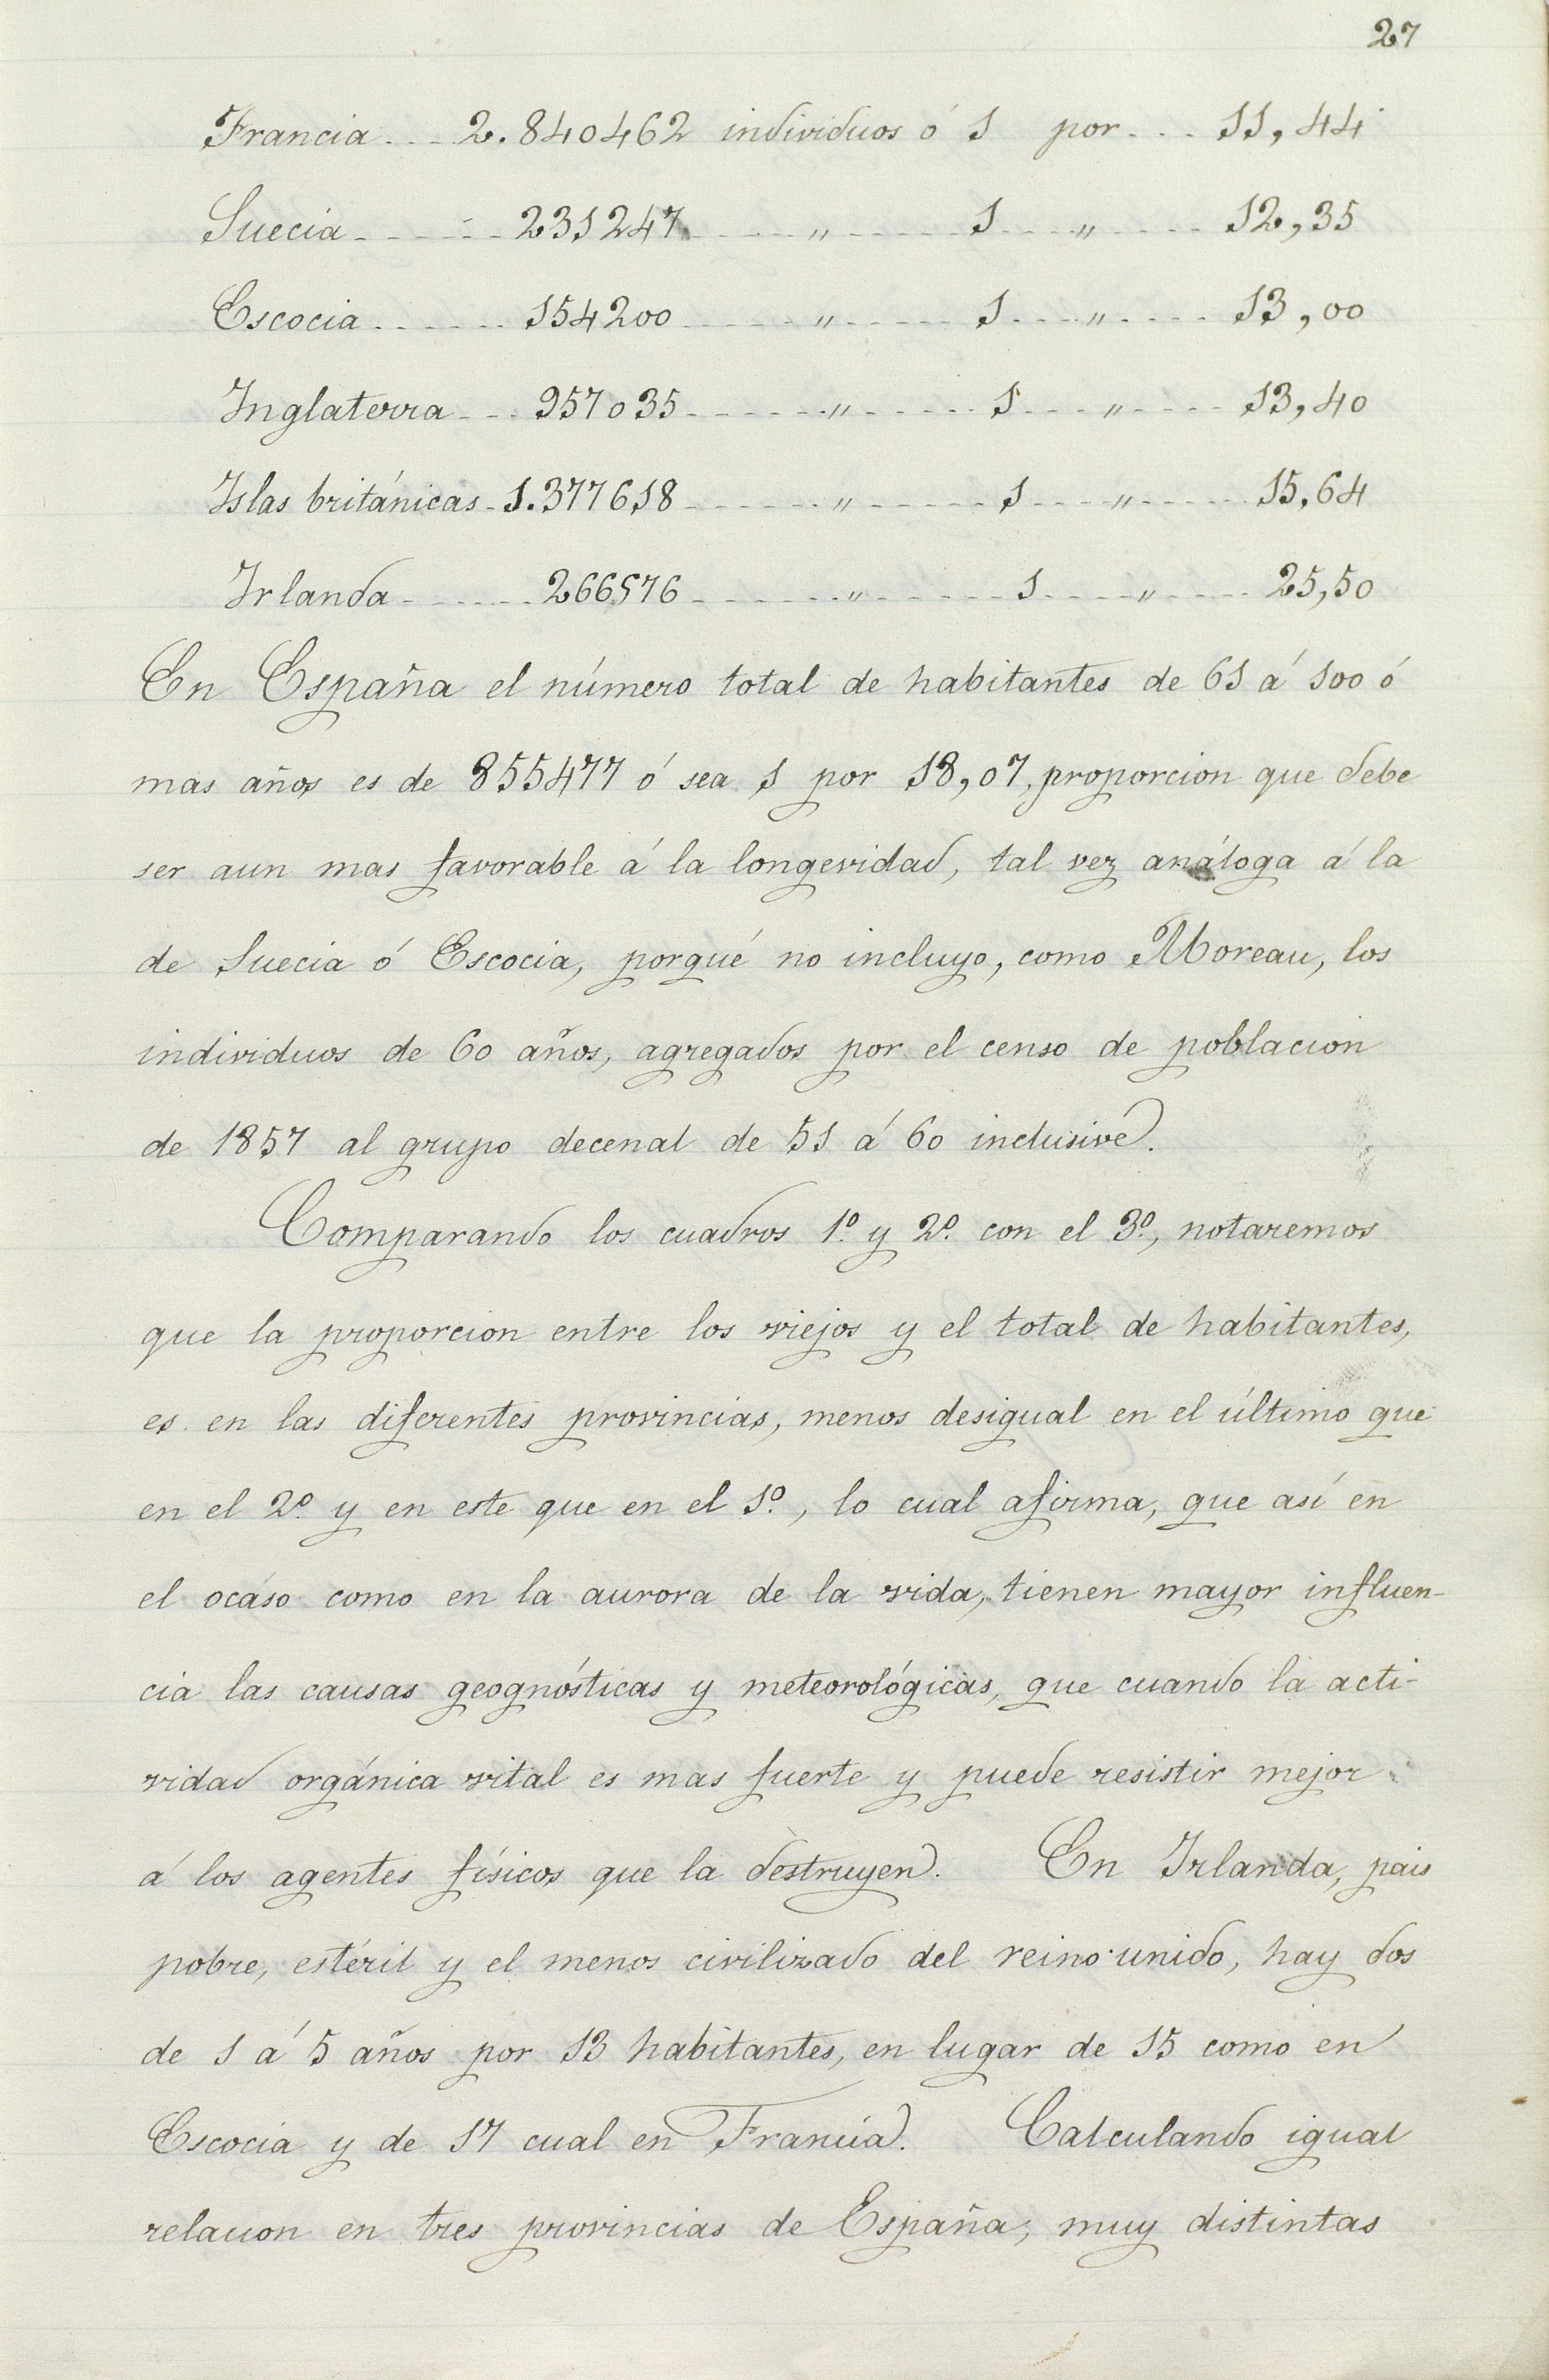 27
Francia....2.840462 individuos ó 1 por....11,44
Suecia.......231247.......".......1....".....12,35
Escocia.......154200.......".......1....".....13,00
Inglaterra....957035.......".......1....".....13,40
Islas británicas.1.377618.......".......1....".....15,64
Irlanda.......266576.......".......1....".....25,50
En España el número total de habitantes de 61 á 100 ó
mas años es de 855477 ó sea 1 por 18,07, proporcion que debe
ser aun mas favorable á la longevidad, tal vez análoga á la
de Suecia ó Escocia, porqué no incluyo, como Moreau, los
individuos de 60 años, agregados por el censo de poblacion
de 1857 al grupo decenal de 51 á 60 inclusivé.
Comparando los cuadros 1º. y 2º. con el 3º., notaremos
que la proporcion entre los viejos y el total de habitantes,
es en las diferentes provincias, menos desigual en el último que
en el 2º. y en este que en el 1º., lo cual afirma, que así en
el ocáso como en la aurora de la vida, tienen mayor influen-
cia las causas geognósticas y meteorológicas, que cuando la acti-
vidad orgánica vital es mas fuerte y puede resistir mejor
á los agentes físicos que la destruyen. En Irlanda, pais
pobre, estéril y el menos civilizado del reino unido, hay dos
de 1 á 5 años por 13 habitantes, en lugar de 15 como en
Escocia y de 17 cual en Francia. Calculando igual
relacion en tres provincias de España, muy distintas